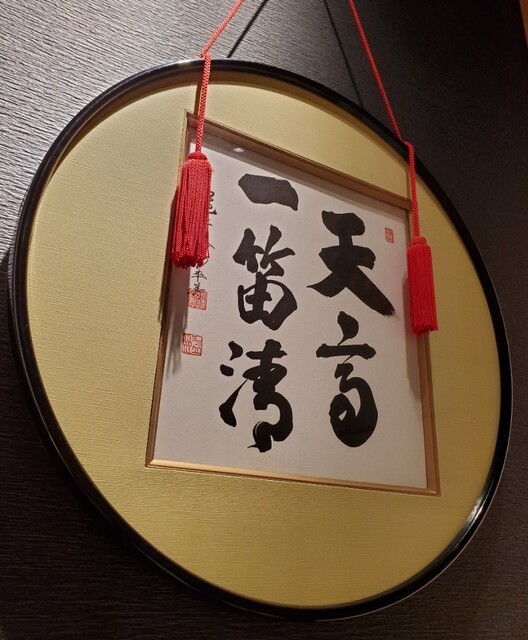 天高
一笛清